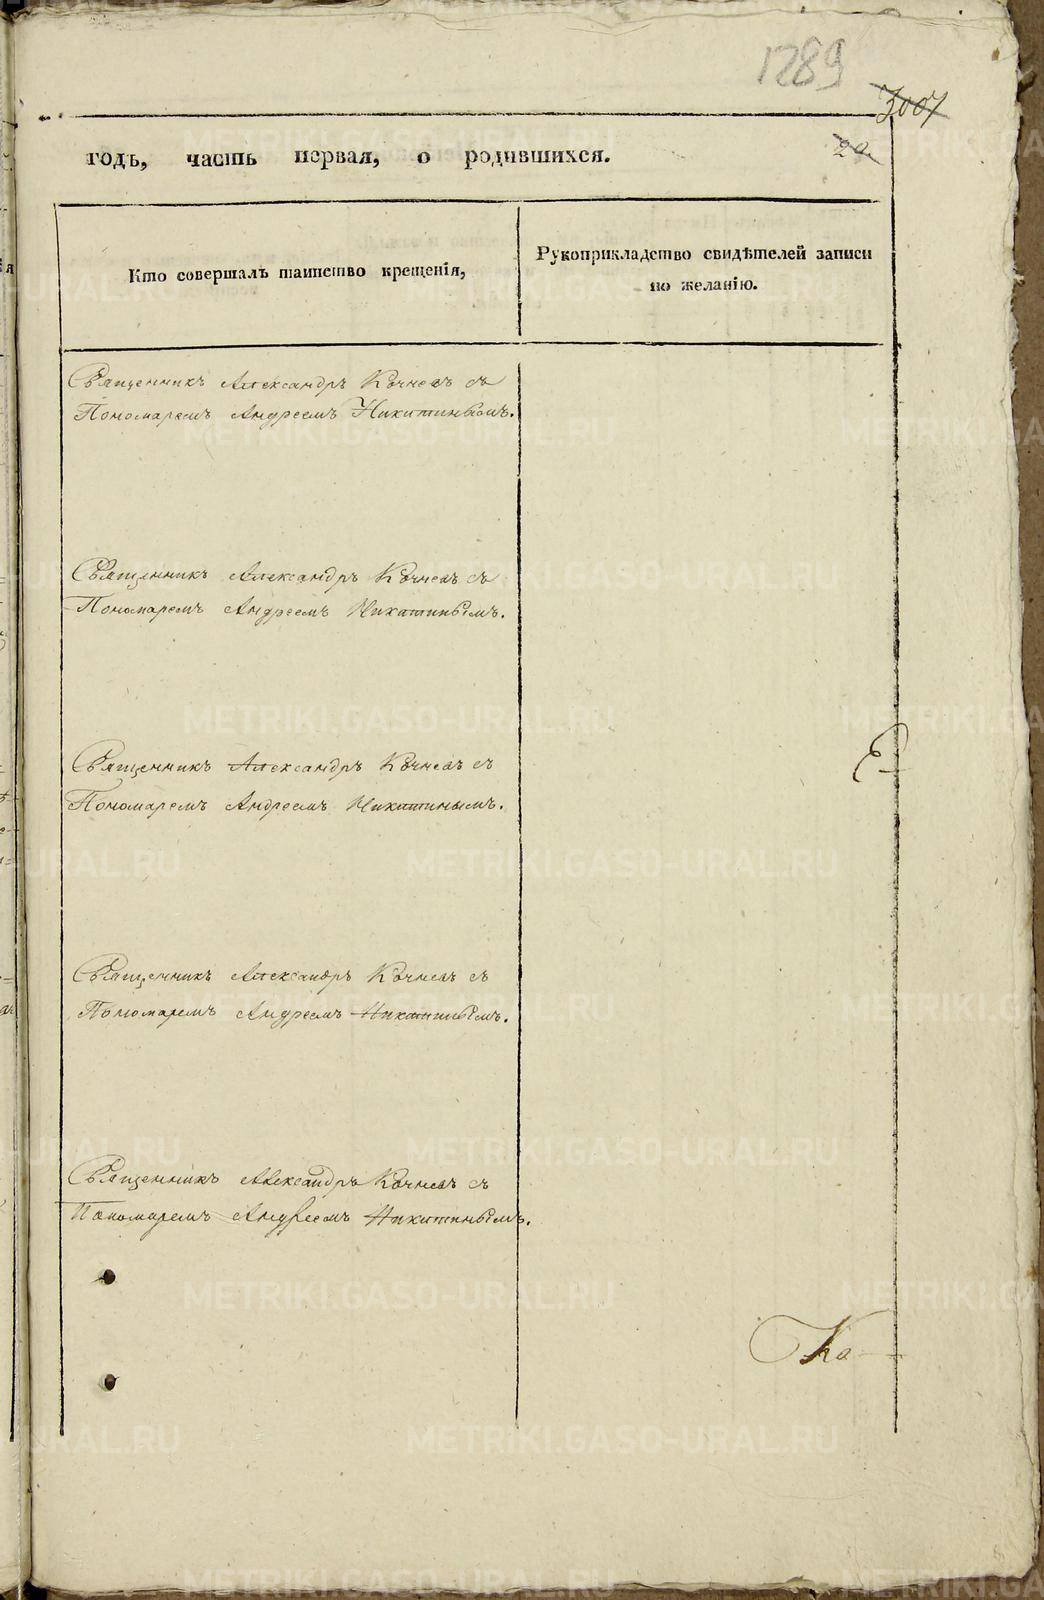 1289
3007
годъ, часть первая, о родившихся.
29.
Кто совершалъ таинство крещенія,
Рукоприкладство свидѣтелей записи
по желанію.
Священникъ Александръ Кочневъ съ
Пономаремъ Андреемъ Никитинымъ.
Священникъ Александръ Кочневъ съ
Пономаремъ Андреемъ Никитинымъ.
Священникъ Александръ Кочневъ съ
Пономаремъ Андреемъ Никитинымъ.
Священникъ Александръ Кочневъ съ
Пономаремъ Андреемъ Никитинымъ.
Священникъ Александръ Кочневъ съ
Пономаремъ Андреемъ Никитинымъ.
Ка
METRIKI.GASO-URAL.RU